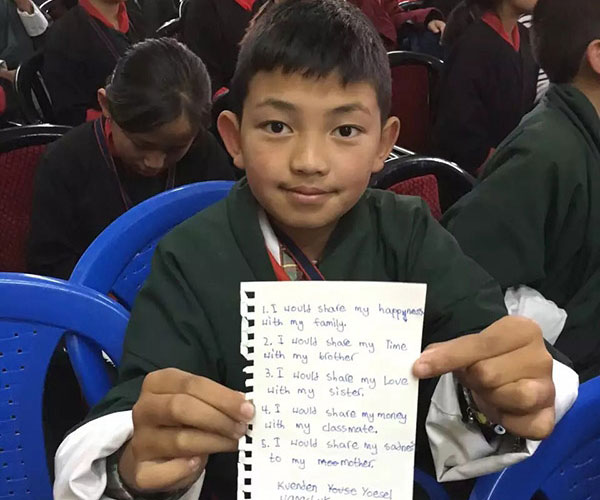 1. I would share my happyness
with my family.
2. I would share my Time
with my brother
3. I would share my Love
with my sister.
4. I would share my money
with my classmate.
5. I would share my sadness
to my mother.
Kuenden